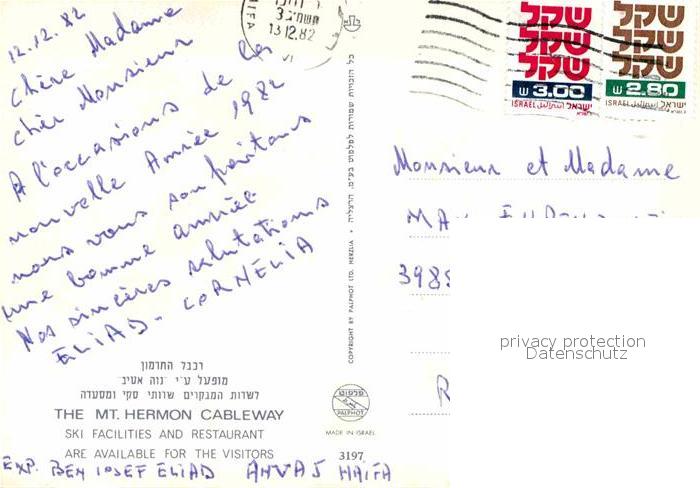 12.12.82
Chère Madame
cher Monsieur
A l'occasions de la
nouvelle Année 1982
nous vous souhaitons
une bonne année
Nos sincères salutations
ELIAD - CORNELIA
רכבל החרמון
מופעל ע"י "נוה אטיב"
לשרות המבקרים שרותי סקי ומסעדה
THE MT. HERMON CABLEWAY
SKI FACILITIES AND RESTAURANT
ARE AVAILABLE FOR THE VISITORS
EXP. BEN IOSEF ELIAD AHVAS HAIFA
כל הזכויות שמורות לפלפוט בע"מ, הרצליה
COPYRIGHT BY PALPHOT LTD. HERZLIA
פלפוט
PALPHOT
MADE IN ISRAEL
3197
13.12.82
שקל
שקל
שקל
3.00
ISRAEL اسرائيل ישראל
שקל
שקל
שקל
2.80
ISRAEL اسرائيل ישראל
Monsieur et Madame
3985
R
privacy protection
Datenschutz